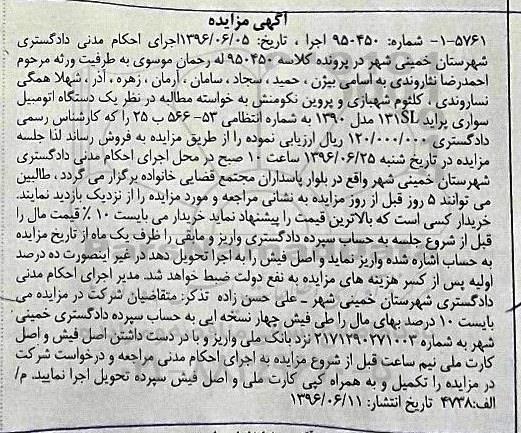 آگهی مزایده
۱-۵۷۶۱- شماره: ۹۵۰۴۵۰ اجرا ، تاریخ: ۱۳۹۶/۰۶/۰۵اجرای احکام مدنی دادگستری
شهرستان خمینی شهر در پرونده کلاسه ۹۵۰۴۵۰ له رحمان موسوی به طرفیت ورثه مرحوم
احمدرضا نثاروندی به اسامی بیژن ، حمید ، سجاد ، سامان ، آرمان ، زهره ، آذر ، شهلا همگی
نساروندی ، کلثوم شهبازی و پروین نکومنش به خواسته مطالبه در نظر یک دستگاه اتومبیل
سواری پراید ۱۳۱SL مدل ۱۳۹۰ به شماره انتظامی ۵۳- ۵۶۶ ب ۲۵ را که کارشناس رسمی
دادگستری ۱۲۰/۰۰۰/۰۰۰ ریال ارزیابی نموده را از طریق مزایده به فروش رساند لذا جلسه
مزایده در تاریخ شنبه ۱۳۹۶/۰۶/۲۵ ساعت ۱۰ صبح در محل اجرای احکام مدنی دادگستری
شهرستان خمینی شهر واقع در بلوار پاسداران مجتمع قضایی خانواده برگزار می گردد ، طالبین
می توانند ۵ روز قبل از روز مزایده به نشانی مراجعه و مورد مزایده را از نزدیک بازدید نمایند.
خریدار کسی است که بالاترین قیمت را پیشنهاد نماید خریدار می بایست ۱۰ ٪ قیمت مال را
قبل از شروع جلسه به حساب سپرده دادگستری واریز و مابقی را ظرف یک ماه از تاریخ مزایده
به حساب اشاره شده واریز نماید و اصل فیش را به اجرا تحویل دهد در غیر اینصورت ده درصد
اولیه پس از کسر هزینه های مزایده به نفع دولت ضبط خواهد شد. مدیر اجرای احکام مدنی
دادگستری شهرستان خمینی شهر ـ علی حسن زاده تذکر: متقاضیان شرکت در مزایده می
بایست ۱۰ درصد بهای مال را طی فیش چهار نسخه ایی به حساب سپرده دادگستری خمینی
شهر به شماره ۲۱۷۱۲۹۰۲۷۱۰۰۳ نزد بانک ملی واریز و با در دست داشتن اصل فیش و اصل
کارت ملی نیم ساعت قبل از شروع مزایده به اجرای احکام مدنی مراجعه و درخواست شرکت
در مزایده را تکمیل و به همراه کپی کارت ملی و اصل فیش سپرده تحویل اجرا نمایید. م/
الف:۴۷۳۸ تاریخ انتشار: ۱۳۹۶/۰۶/۱۱